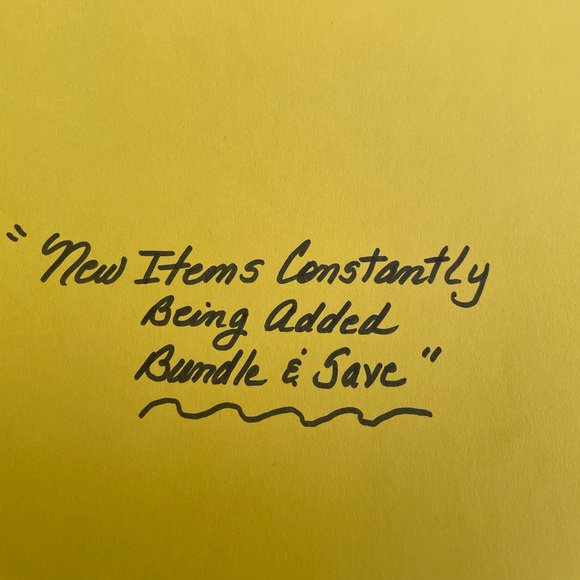 "New Items Constantly
Being Added
Bundle & Save"